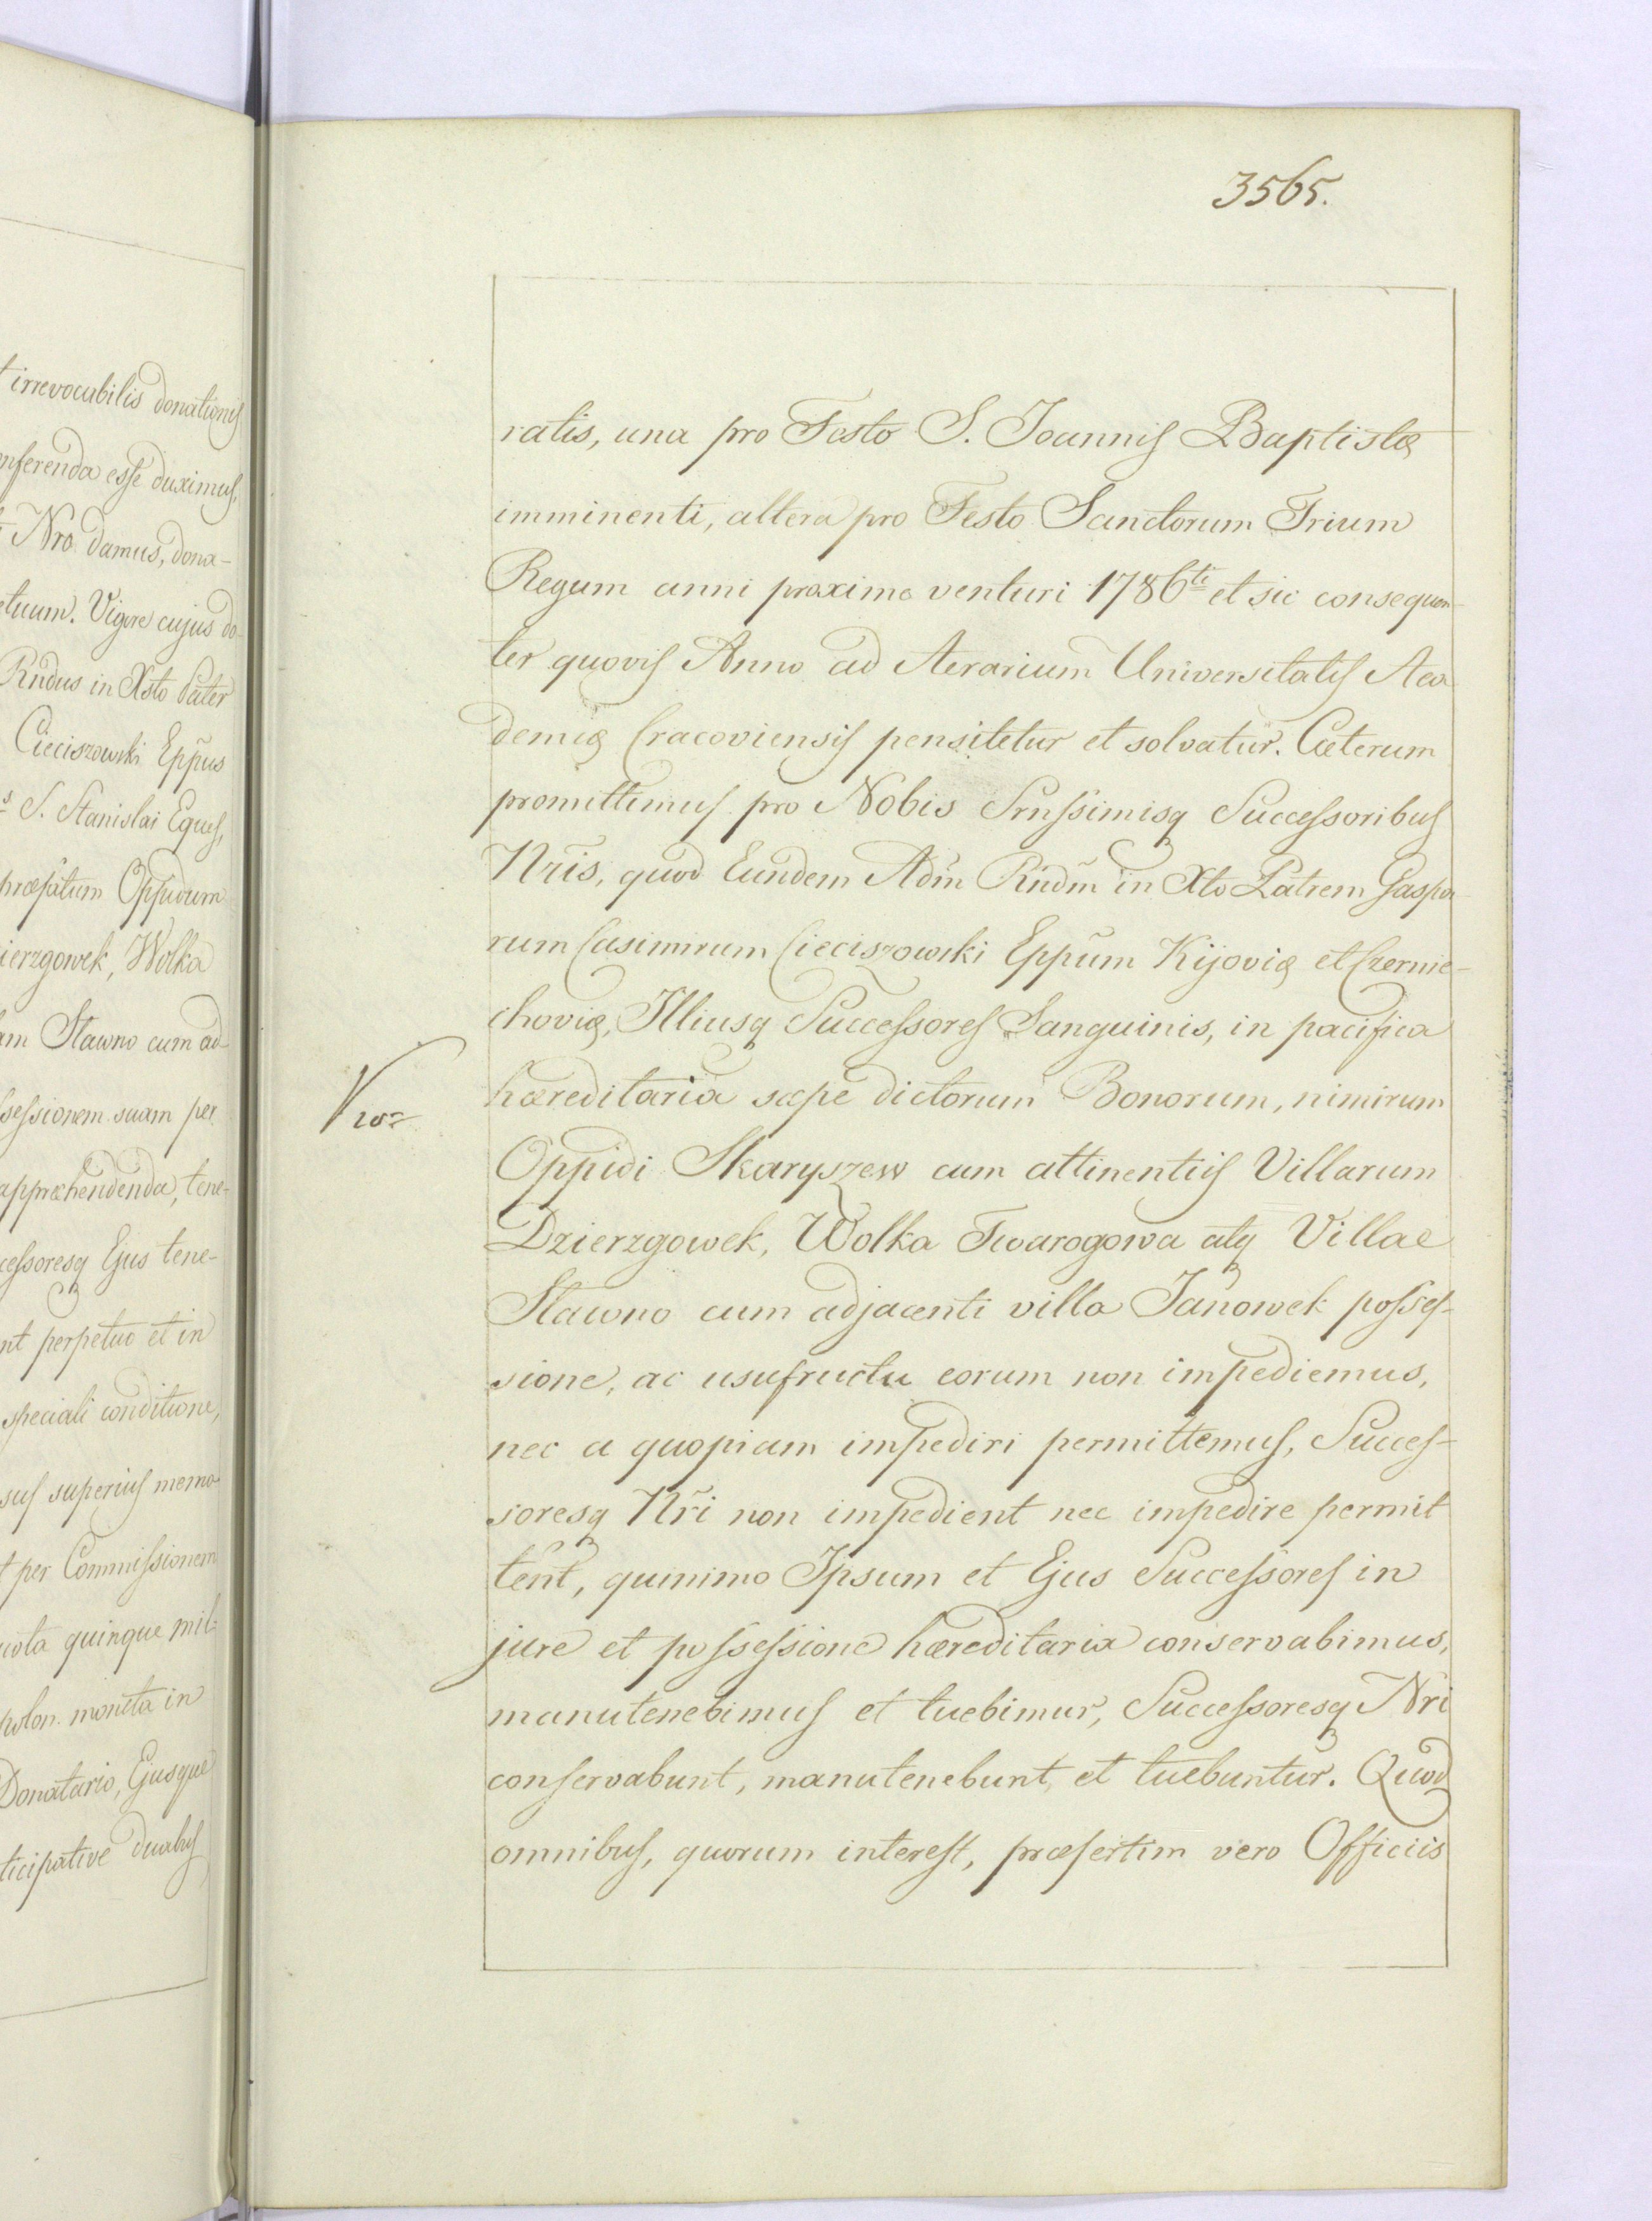 irrevocabilis donationis
esse duximus,
Nro damus, dona-
Vigore cujus do-
Rndus in Xsto Pater
Cieciszowski Eppus
S. Stanislai Eques,
præfatum Oppidum
Wolka
Stawno cum ad-
suam per
appræhendenda, tene-
Ejus tene-
perpetuo et in
speciali conditione,
superius memo-
per Commissionem
quinque mil-
moneta in
Donatario, Ejusque
duabus
3565.
ratis, una pro Festo S. Joannis Baptistæ
imminenti, altera pro Festo Sanctorum Trium
Regum anni proxime venturi 1786ti et sic consequen-
ter quovis Anno ad Aerarium Universitatis Aca
demiæ Cracoviensis pensitetur et solvatur. Cæterum
promittimus pro Nobis Srnssimisq Successoribus
Nris, quod Eundem Adm Rndm in Xto Patrem Gaspa-
rum Casimirum Cieciszowski Eppum Kijoviæ et Czernie-
choviæ, Illiusq Successores Sanguinis, in pacifica
hæreditaria sæpe dictorum Bonorum, nimirum
Oppidi Skaryszew cum attinentiis Villarum
Dzierzgowek, Wolka Twarogowa atq Villae
Stawno cum adjacenti villa Janowek posses-
sione, ac usufructu eorum non impediemus,
nec a quopiam impediri permittemus, Succes-
soresq Nri non impedient nec impedire permit
tent, quinimo Ipsum et Ejus Successores in
jure et possessione hæreditaria conservabimus,
manutenebimus et tuebimur, Successoresq Nri
conservabunt, manutenebunt, et tuebuntur. Quod
omnibus, quorum interest, præsertim vero Officiis